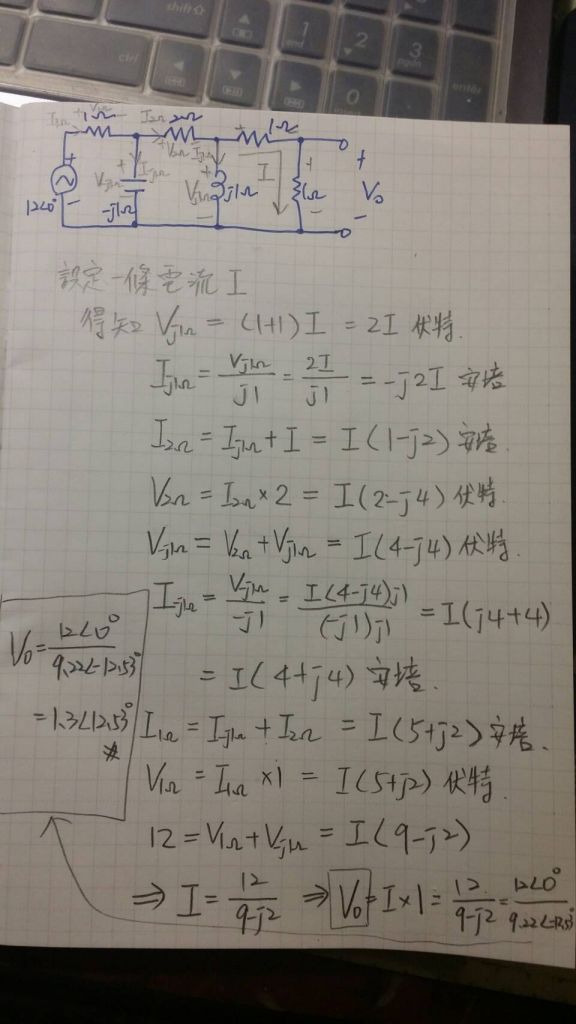 shift⇧
ctrl
1
end
2
3
pgdn
0
enter
I1Ω + V1Ω 1Ω I2Ω 2Ω + 1Ω
+ V2Ω - Ij1Ω
12∠0° V-j1Ω -j1Ω I-j1Ω Vj1Ω j1Ω I 1Ω + V₀ -
設定一條電流 I
得知 Vj1Ω = (1+1) I = 2I 伏特.
Ij1Ω = Vj1Ω/j1 = 2I/j1 = -j2I 安培
I2Ω = Ij1Ω + I = I(1-j2) 安培.
V2Ω = I2Ω × 2 = I(2-j4) 伏特.
V-j1Ω = V2Ω + Vj1Ω = I(4-j4) 伏特.
I-j1Ω = V-j1Ω/-j1 = I(4-j4)j1/(-j1)j1 = I(j4+4)
= I(4+j4) 安培.
I1Ω = I-j1Ω + I2Ω = I(5+j2) 安培.
V1Ω = I1Ω × 1 = I(5+j2) 伏特.
12 = V1Ω + V-j1Ω = I(9-j2)
⇒ I = 12/9-j2 ⇒ V₀ = I×1 = 12/9-j2 = 12∠0°/9.22∠-12.53°
V₀ = 12∠0°/9.22∠-12.53°
= 1.3∠12.53° #